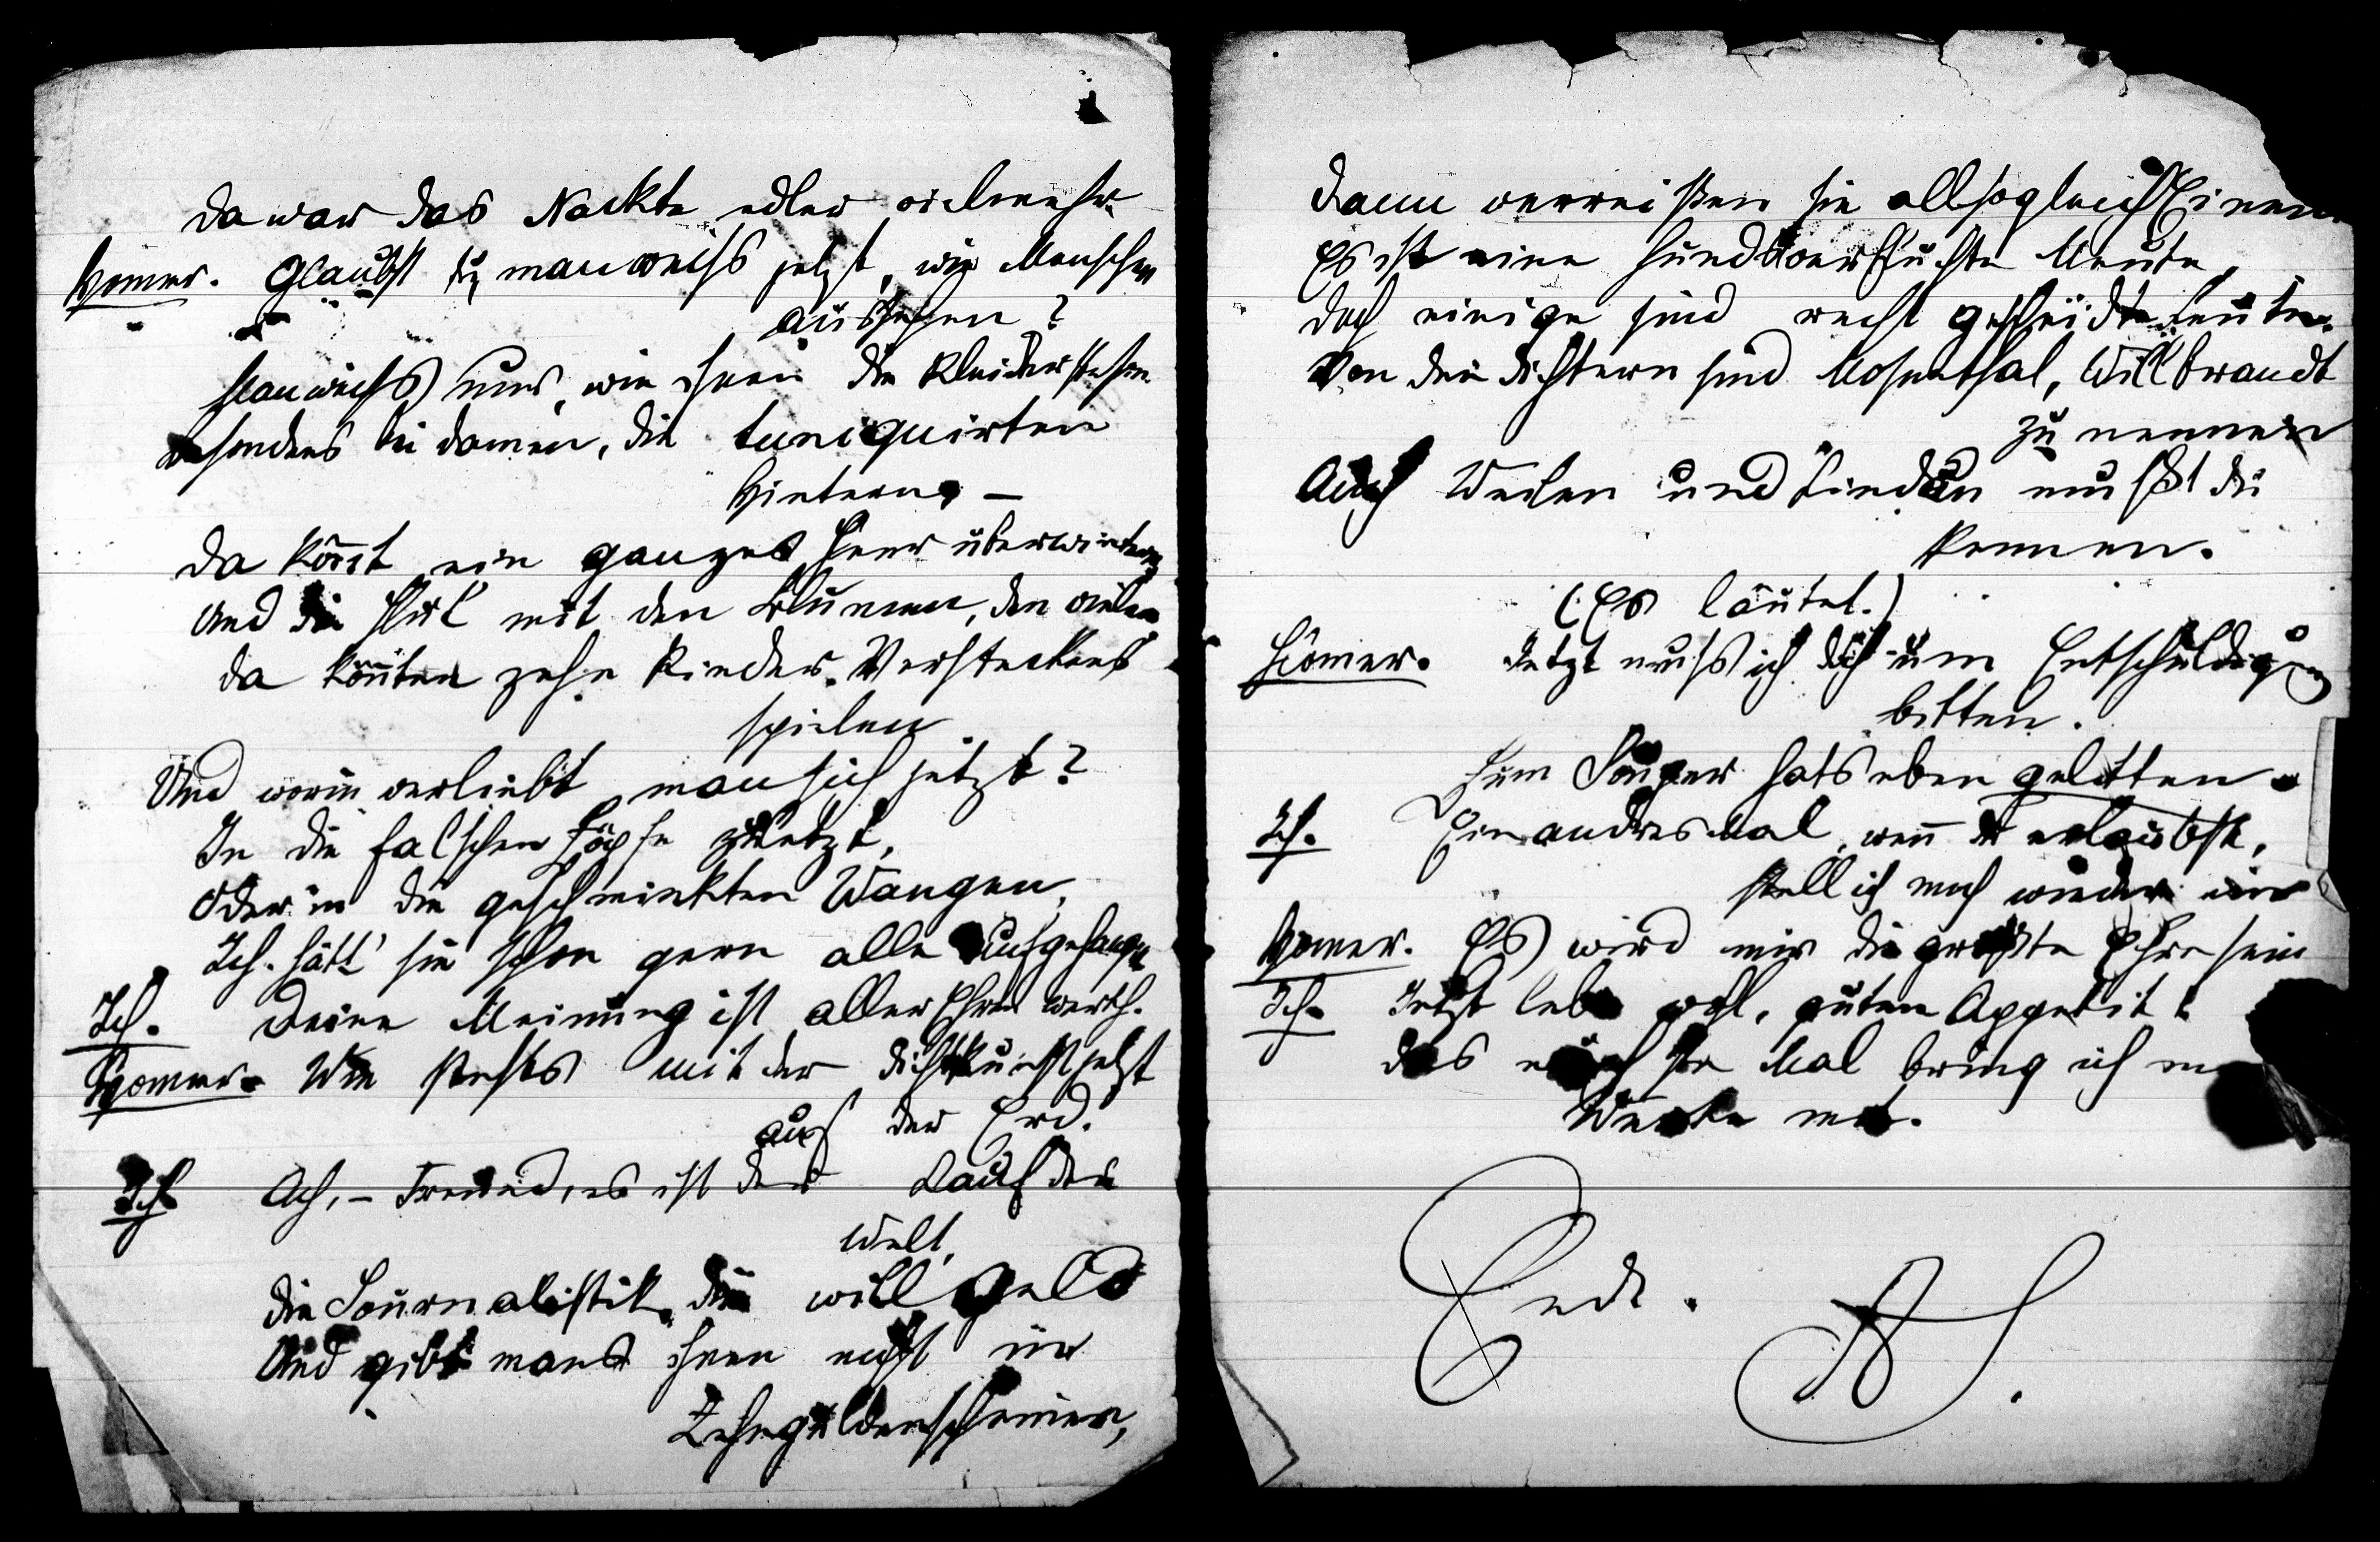 Da war das Nackte edler vielmehr.
Homer. Glaubst du, man weiss jetzt, wie Menschen
aussehen?
Man weiss nur, wie ihnen die Kleider stehen
Besonders bei Damen, die tuniquirten
Hintern, –
Da könnt ein ganzes Heer überwintern,
Und die Hüt' mit den Blumen, den vielen
Da könnten zehn Kinder Versteckens
spielen
Und worin verliebt man sich jetzt?
In die falschen Zöpfe zuletzt,
Oder in die geschminkten Wangen,
Ich hätt' sie schon gern alle aufgehangen
Ich. Deine Meinung ist aller Ehren werth.
Homer. Wie stehts mit der Dichtkunst jetzt
auf der Erd.
Ich Ach, – Freund, es ist der Lauf der
Welt,
Die Journalistik, die will Geld
Und gibt mans ihnen nicht in
Zehnguldenscheinen,
Dann verreißen sie allsogleich Einen
Es ist eine hundsverfluchte Meute,
Doch einige sind recht gescheidte Leute.
Von den Dichtern sind Mosenthal, Willbrandt
zu nennen
Auch Weilen und Lindau mußt du
kennen.
(Es läutet.)
Homer. Jetzt muss ich dich um Entschuldigung
bitten.
Zum Souper hats eben gelitten.
Ich. Ein andres Mal, wenn du erlaubst,
stell ich mich wieder ein
Homer. Es wird mir die größte Ehre sein
Ich. Jetzt lebe wohl, guten Appetit!
Das nächste Mal bring ich
Werke mit.
Ende. AS.